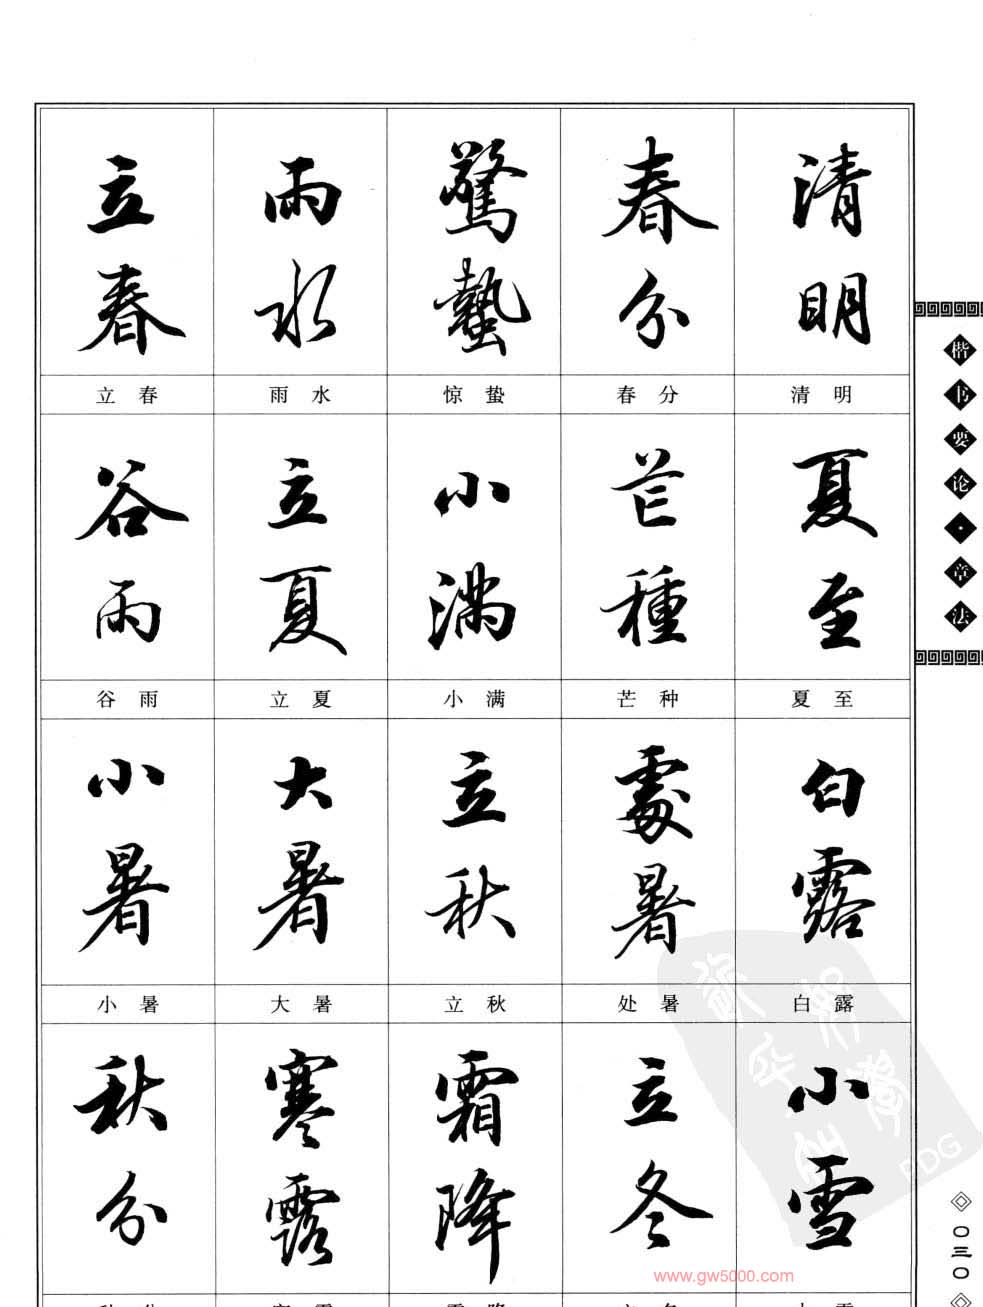 立春 雨水 驚蟄 春分 清明
立春 雨水 惊蛰 春分 清明
谷雨 立夏 小满 芒種 夏至
谷雨 立夏 小满 芒种 夏至
小暑 大暑 立秋 處暑 白露
小暑 大暑 立秋 处暑 白露
秋分 寒露 霜降 立冬 小雪
楷书要论·章法
〇三〇
www.gw5000.com
PDG